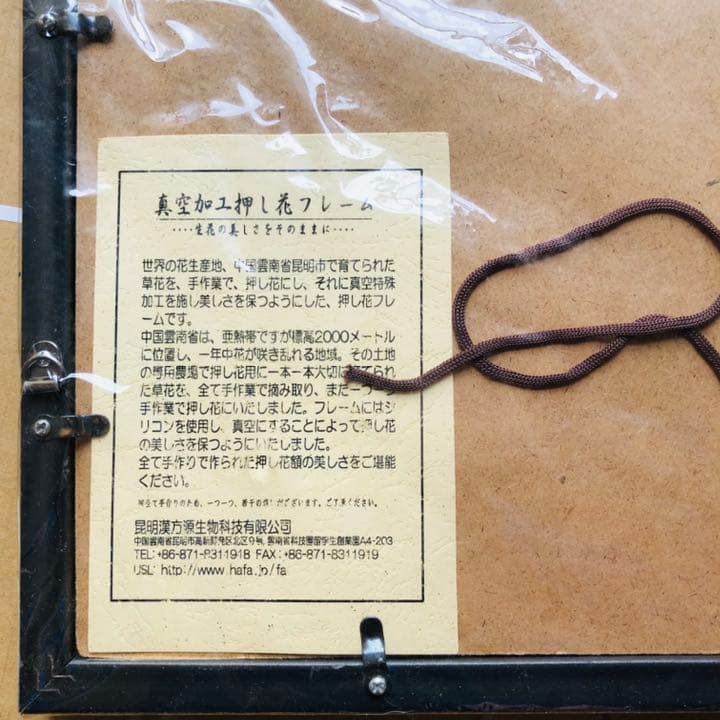 真空加工押し花フレーム
‥‥生花の美しさをそのままに‥‥
世界の花生産地、中国雲南省昆明市で育てられた
草花を、手作業で、押し花にし、それに真空特殊
加工を施し美しさを保つようにした、押し花フレ
ームです。
中国雲南省は、亜熱帯ですが標高2000メートル
に位置し、一年中花が咲き乱れる地域。その土地
の専用農場で押し花用に一本一本大切に育てられ
た草花を、全て手作業で摘み取り、また一つ一つ
手作業で押し花にいたしました。フレームにはシ
リコンを使用し、真空にすることによって押し花
の美しさを保つようにいたしました。
全て手作りで作られた押し花額の美しさをご堪能
ください。
全て手作りのため、一つ一つ、若干の違いがございます。ご了承ください。
昆明漢方源生物科技有限公司
中国雲南省昆明市高新開発区北区9号, 雲南省科技園留学生創業園A4-203
TEL:+86-871-8311918 FAX:+86-871-8311919
USL: http://www.hafa.jo/fa